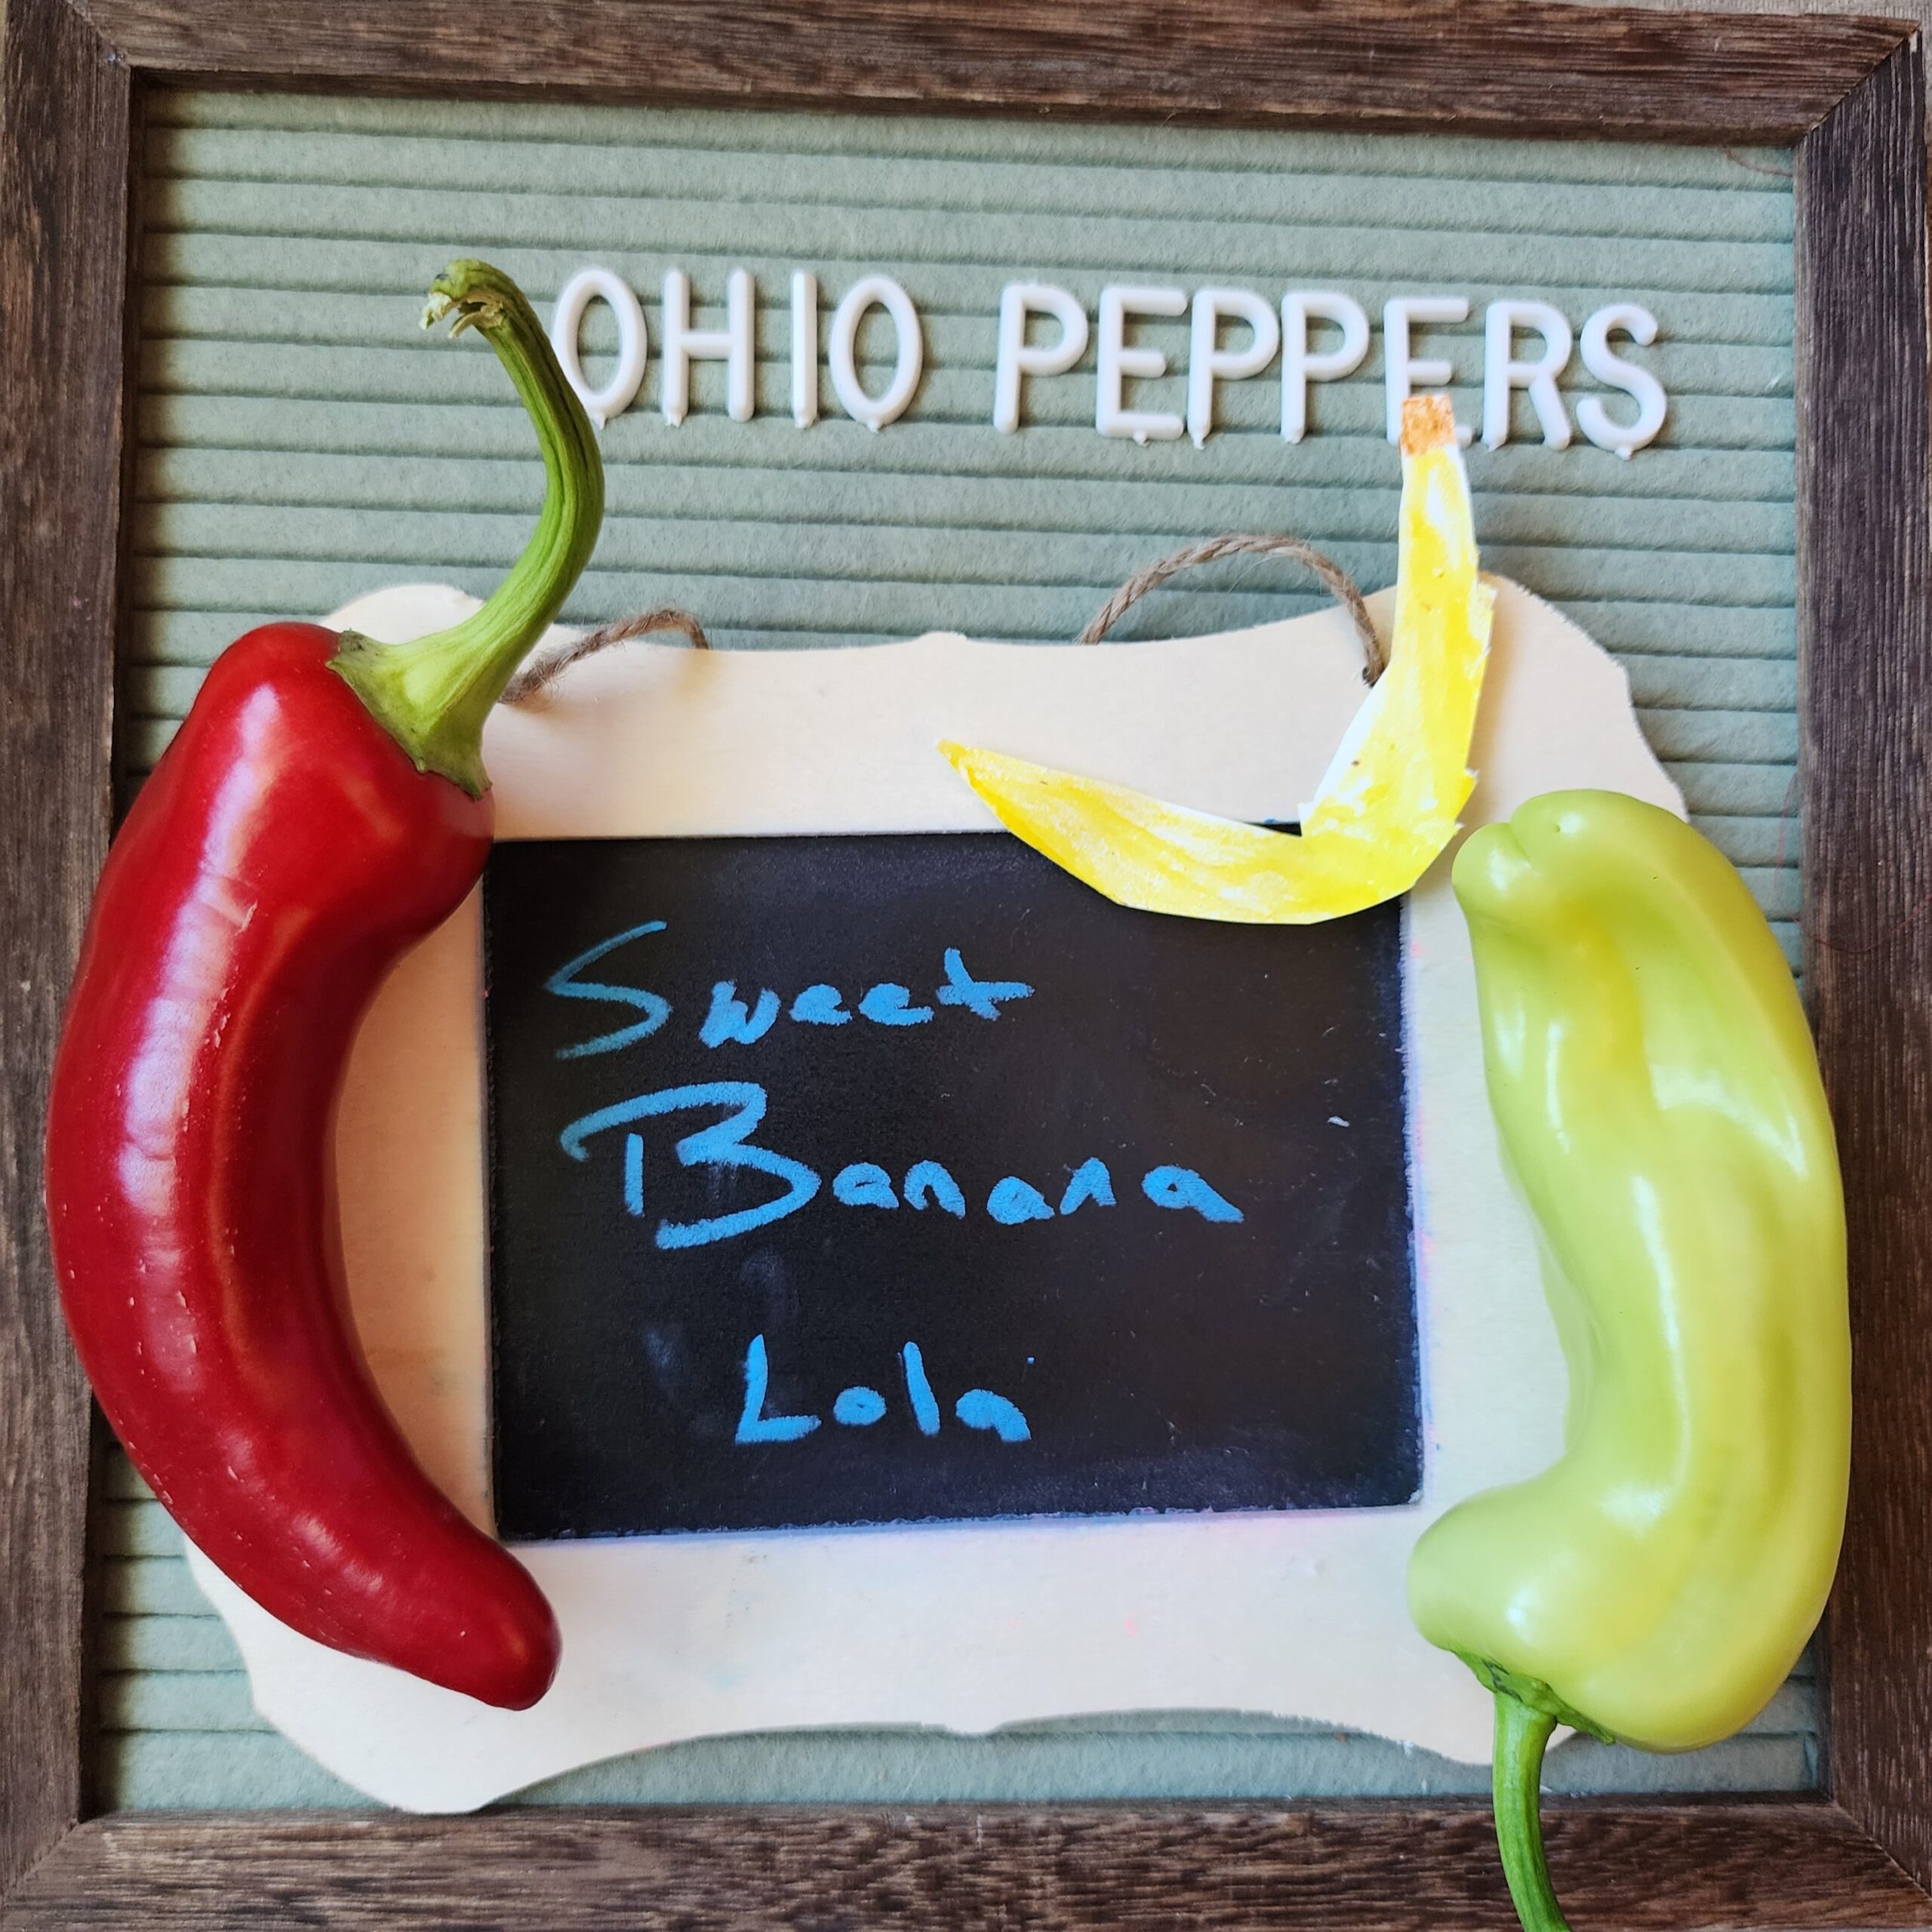 OHIO PEPPERS
Sweet
Banana
Lola